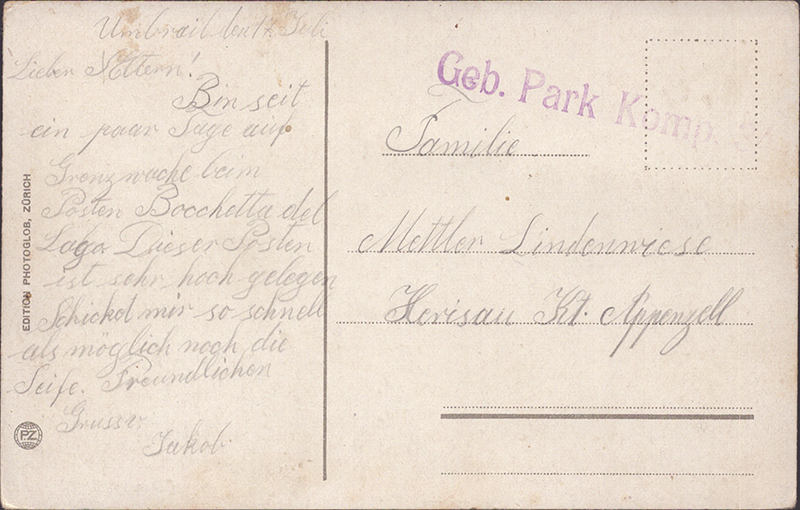 Umbrail den 17. Juli
Lieber Eltern!
Bin seit
ein paar Tage auf
Grenzwache beim
Posten Bocchetta del
Lago. Dieser Posten
ist sehr hoch gelegen
Schicket mir so schnell
als möglich noch die
Seife. Freundlichen
Gruss
Jakob
EDITION PHOTOGLOB, ZÜRICH
PZ
Geb. Park Komp.
Familie
Mettler Lindenwiese
Herisau Kt. Appenzell